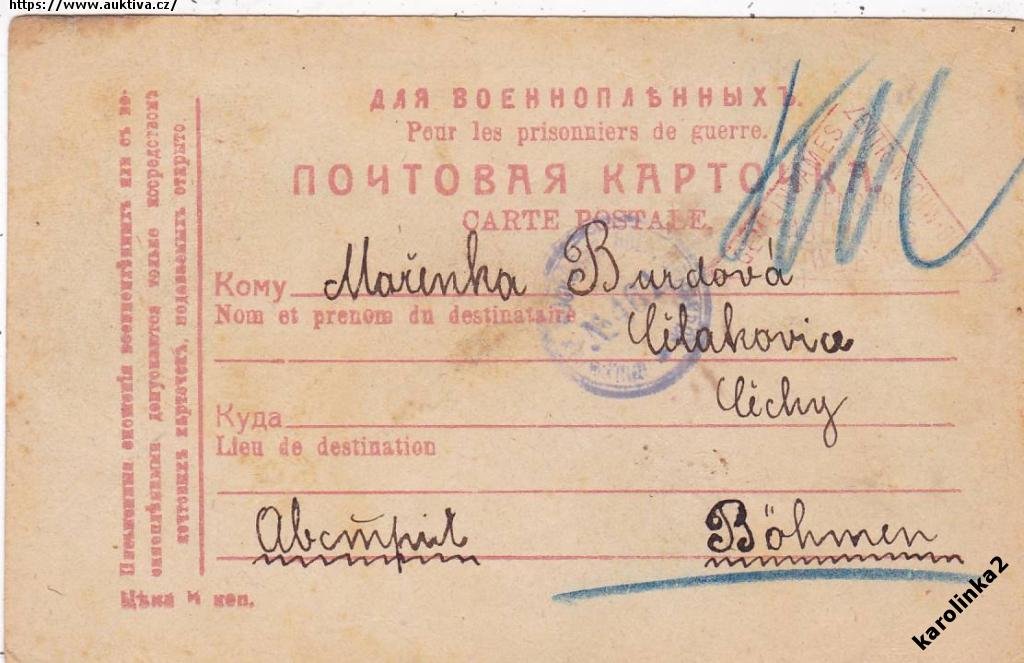 https://www.auktiva.cz/
ДЛЯ ВОЕННОПЛѢННЫХЪ.
Pour les prisonniers de guerre.
ПОЧТОВАЯ КАРТОЧКА.
CARTE POSTALE.
Кому Mařenka Burdová
Nom et prenom du destinataire
Čelakovice
Čechy
Куда
Lieu de destination
Австрия Böhmen
Письменныя сношенія военноплѣнныхъ или съ во-
енноплѣнными допускаются только посредствомъ
почтовыхъ карточекъ, подаваемыхъ открыто.
Цѣна коп.
№
karolinka2